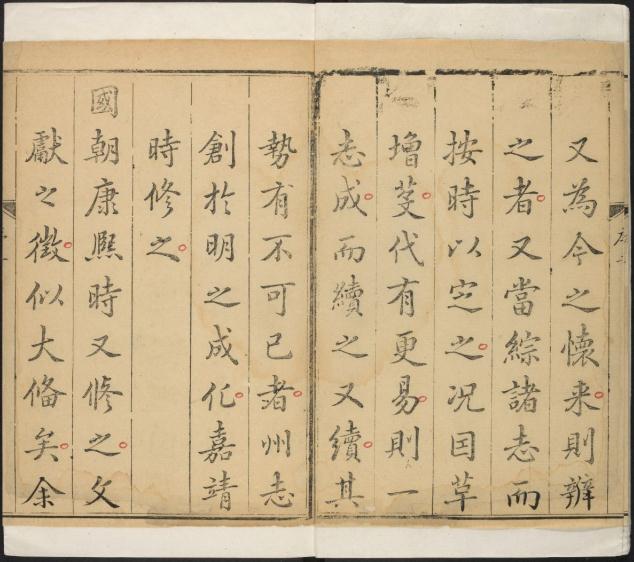 又為今之懷来則辨
之者又當綜諸志而
按時以㝎之况囙革
增芟代有更易則一
志成而續之又續其
勢有不可已者州志
創於明之成化嘉靖
時修之
國朝康熙時又修之文
獻之徵似大偹矣余